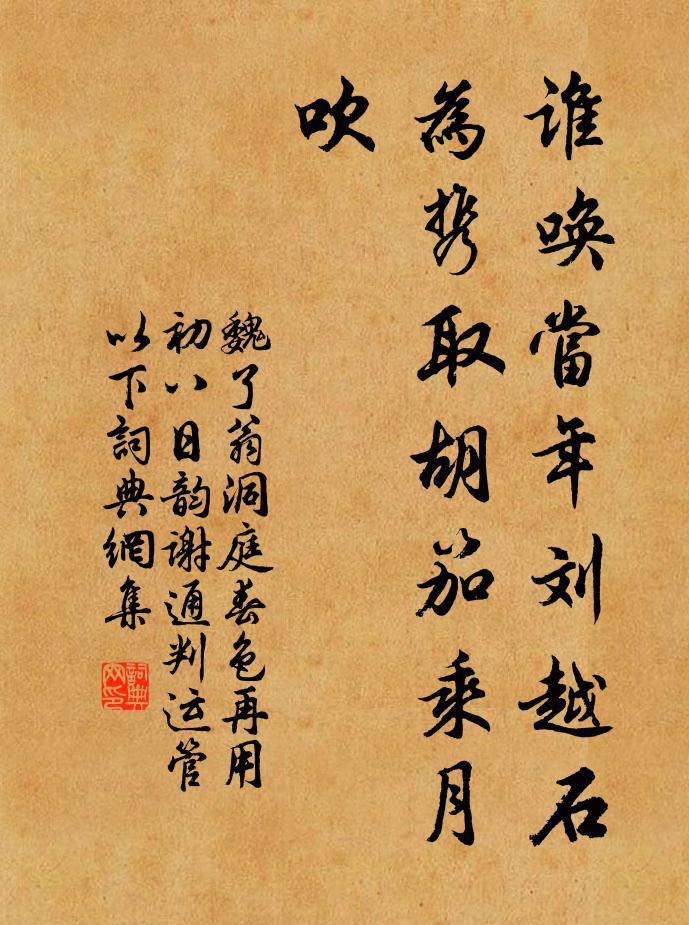 谁唤當年刘越石
為携取胡笳乘月
吹
魏了翁洞庭春色再用
初八日韵谢通判运管
以下詞典網集
詞典
网印